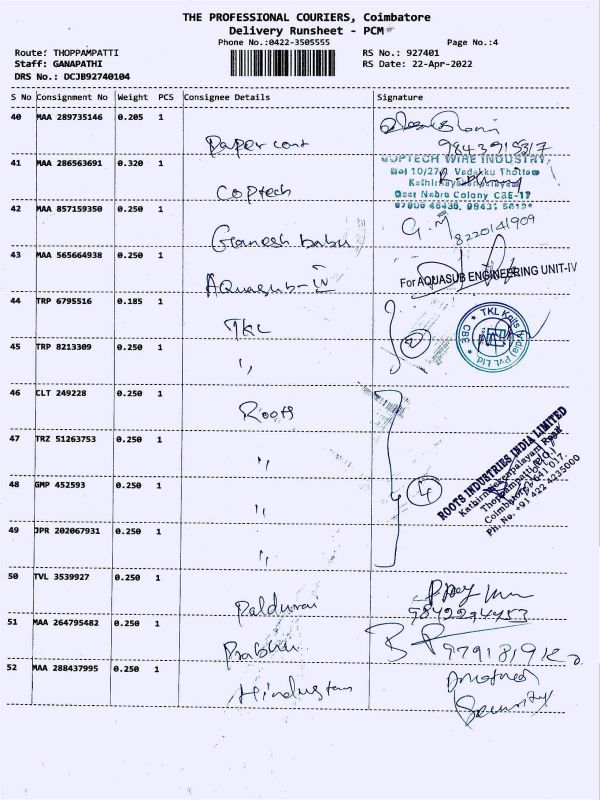 THE PROFESSIONAL COURIERS, Coimbatore
Delivery Runsheet - PCM
Phone No.:0422-3505555 Page No.:4
Route: THOPPAMPATTI RS No.: 927401
Staff: GANAPATHI RS Date: 22-Apr-2022
DRS No.: DCJB92740104
S No Consignment No Weight PCS Consignee Details Signature
40 MAA 289735146 0.205 1
Paper cont 9843915317
41 MAA 286563691 0.320 1
Coptech
COPTECH WIRE INDUSTRY,
Vadakku Thottam
Near Nehru Colony CBE-17
42 MAA 857159350 0.250 1
Ganesh babu G.M 8220141909
43 MAA 565664938 0.250 1
Aquasub-IV For AQUASUB ENGINEERING UNIT-IV
44 TRP 6795516 0.185 1
TKL 2
TKL Knits India Pvt Ltd. CBE
45 TRP 8213309 0.250 1
"
46 CLT 249228 0.250 1
Roots
47 TRZ 51263753 0.250 1
"
ROOTS INDUSTRIES INDIA LIMITED
Thoppampatti
Coimbatore 641 017.
Ph. No. +91 422 4235000
48 GMP 452593 0.250 1
" 4
49 JPR 202067931 0.250 1
"
50 TVL 3539927 0.250 1
Paldurai
51 MAA 264795482 0.250 1
Prabhu
52 MAA 288437995 0.250 1
Hindustan
Security